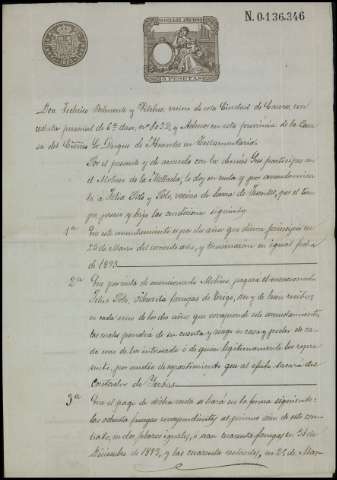 N. 0.136.346
5 PESETAS
Don Federico Belmonte y Vilches, vecino de esta Ciudad de Cuenca, con
cedula personal de 6ª clase, nº 8032, y Admor en esta provincia de la Ca-
sa del Exmo Sr. Duque de Frias, su Testamentaria.
Por el presente y de acuerdo con los demás partícipes en
el Molino de la Noguera, le doy en renta y por arrendamien-
to á Felix Soto y Soto, vecino de de por el tiem-
po, precio y bajo las condiciones siguientes
1ª Este arrendamiento es por dos años que dieron principio en
25 de Marzo del corriente año, y terminarán en igual fecha
de 1893
2ª Que por renta de mencionado Molino, pagará el mencionado
Felix Soto, ochenta fanegas de trigo, seco y de buen recibo
en cada uno de los dos años que comprende este arrendamiento
las cuales pondrá de su cuenta y riesgo en casa y poder de ca-
da uno de los interesados ó de quien legitimamente les repre-
sente, por medio de repartimiento que al efecto hará el
Contador de
3ª Que el pago de dicha renta se hará en la forma siguiente:
las ochenta fanegas correspondientes al primer año de este con-
trato, en dos plazos iguales, ó sean cuarenta fanegas en 25 de
Diciembre de 1892, y las cuarenta restantes, en 25 de Mar-